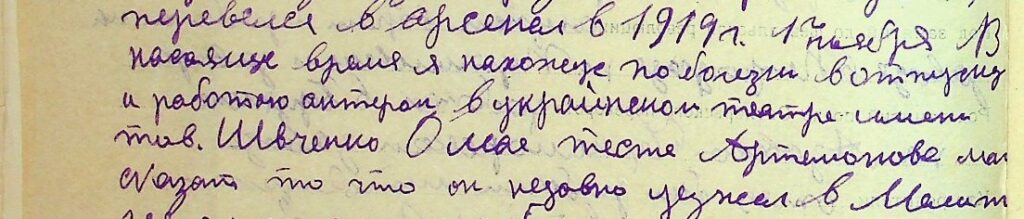 перевелся в арсенал в 1919 г. 1 ноября В
насаяще время я нахожус по болезни в отпуску
и работаю актером в украинском театре имени
тов. Швченко О мае тесте Артемонове маг
сказат то что он недавно уезжал в Мелит